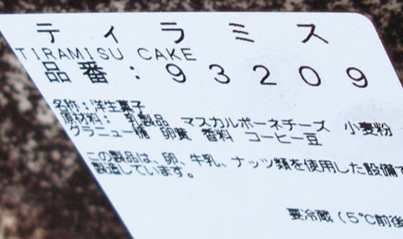 ティラミス
TIRAMISU CAKE
品番:93209
名称:洋生菓子
原材料: 乳製品 マスカルポーネチーズ 小麦粉
グラニュー糖 卵黄 香料 コーヒー豆
この製品は、卵、牛乳、ナッツ類を使用した設備で
製造しています。
要冷蔵(5℃前後